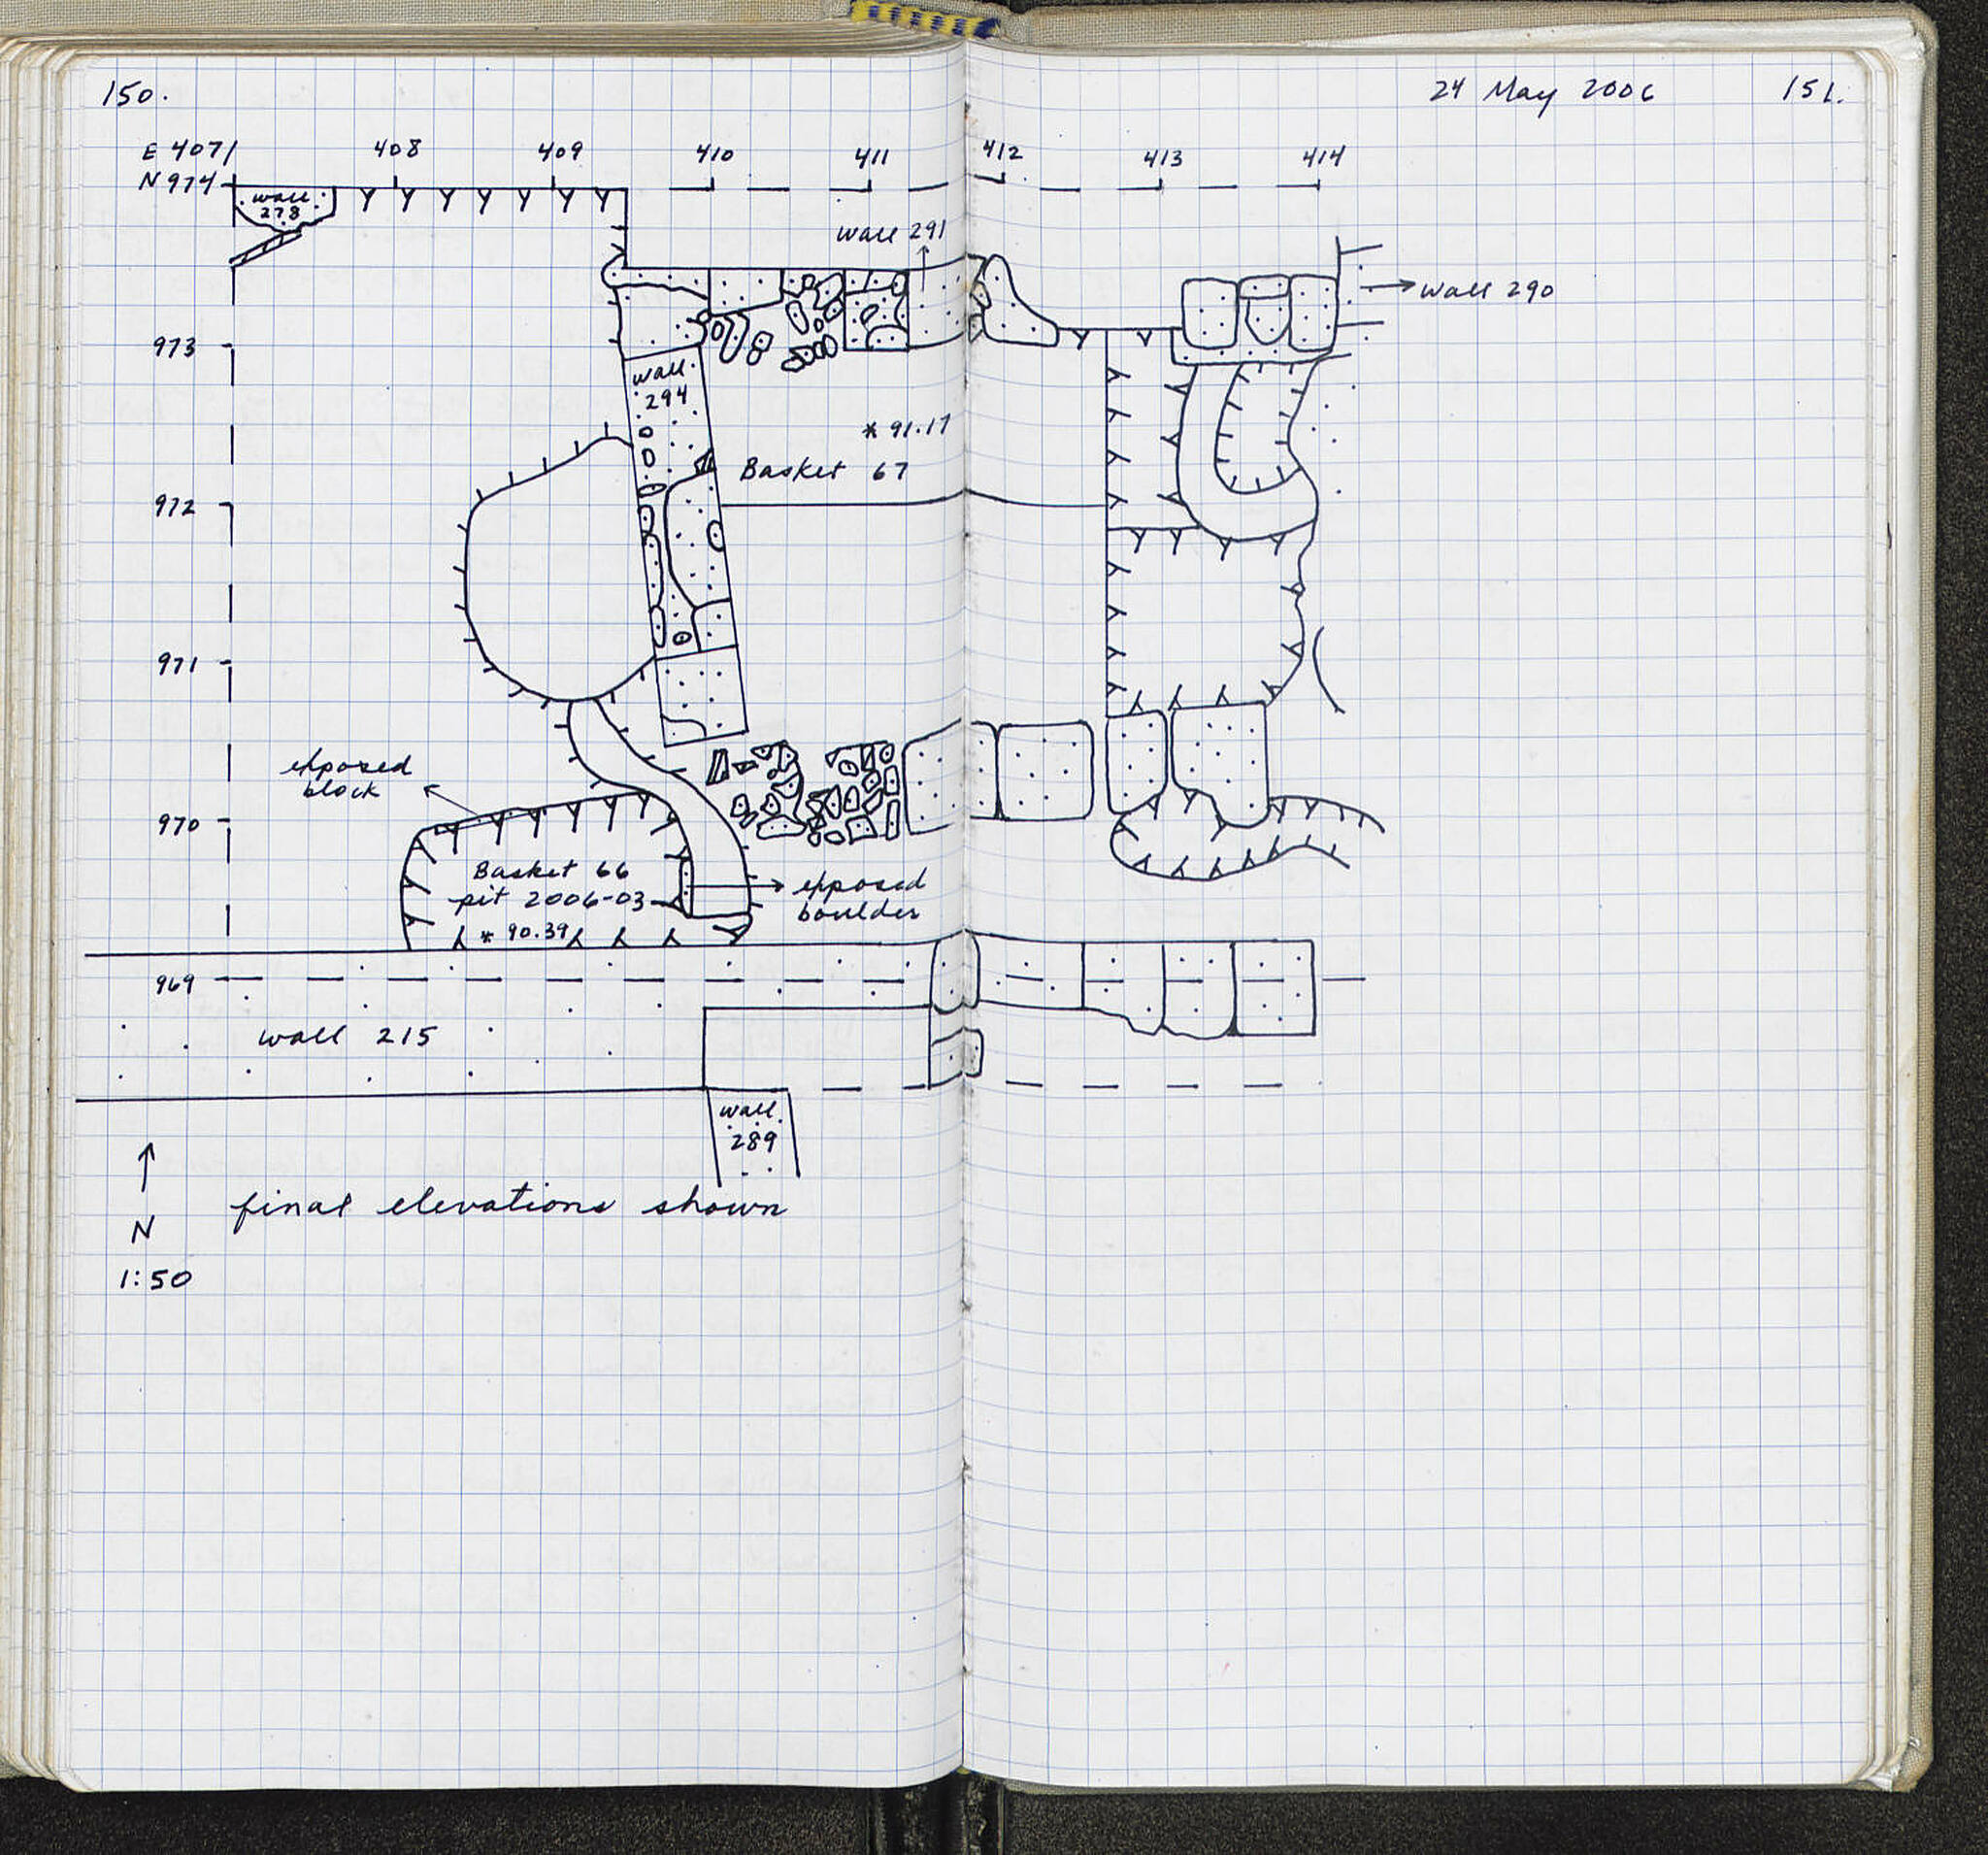 150.
24 May 2006
151.
E 407/ 408 409 410 411 412 413 414
N 974
wall
278
wall 291
wall 290
973
wall
294
* 91.17
Basket 67
972
971
exposed
block
970
Basket 66
pit 2006-03
* 90.39
exposed
boulder
969
wall 215
wall
289
N
final elevations shown
1:50